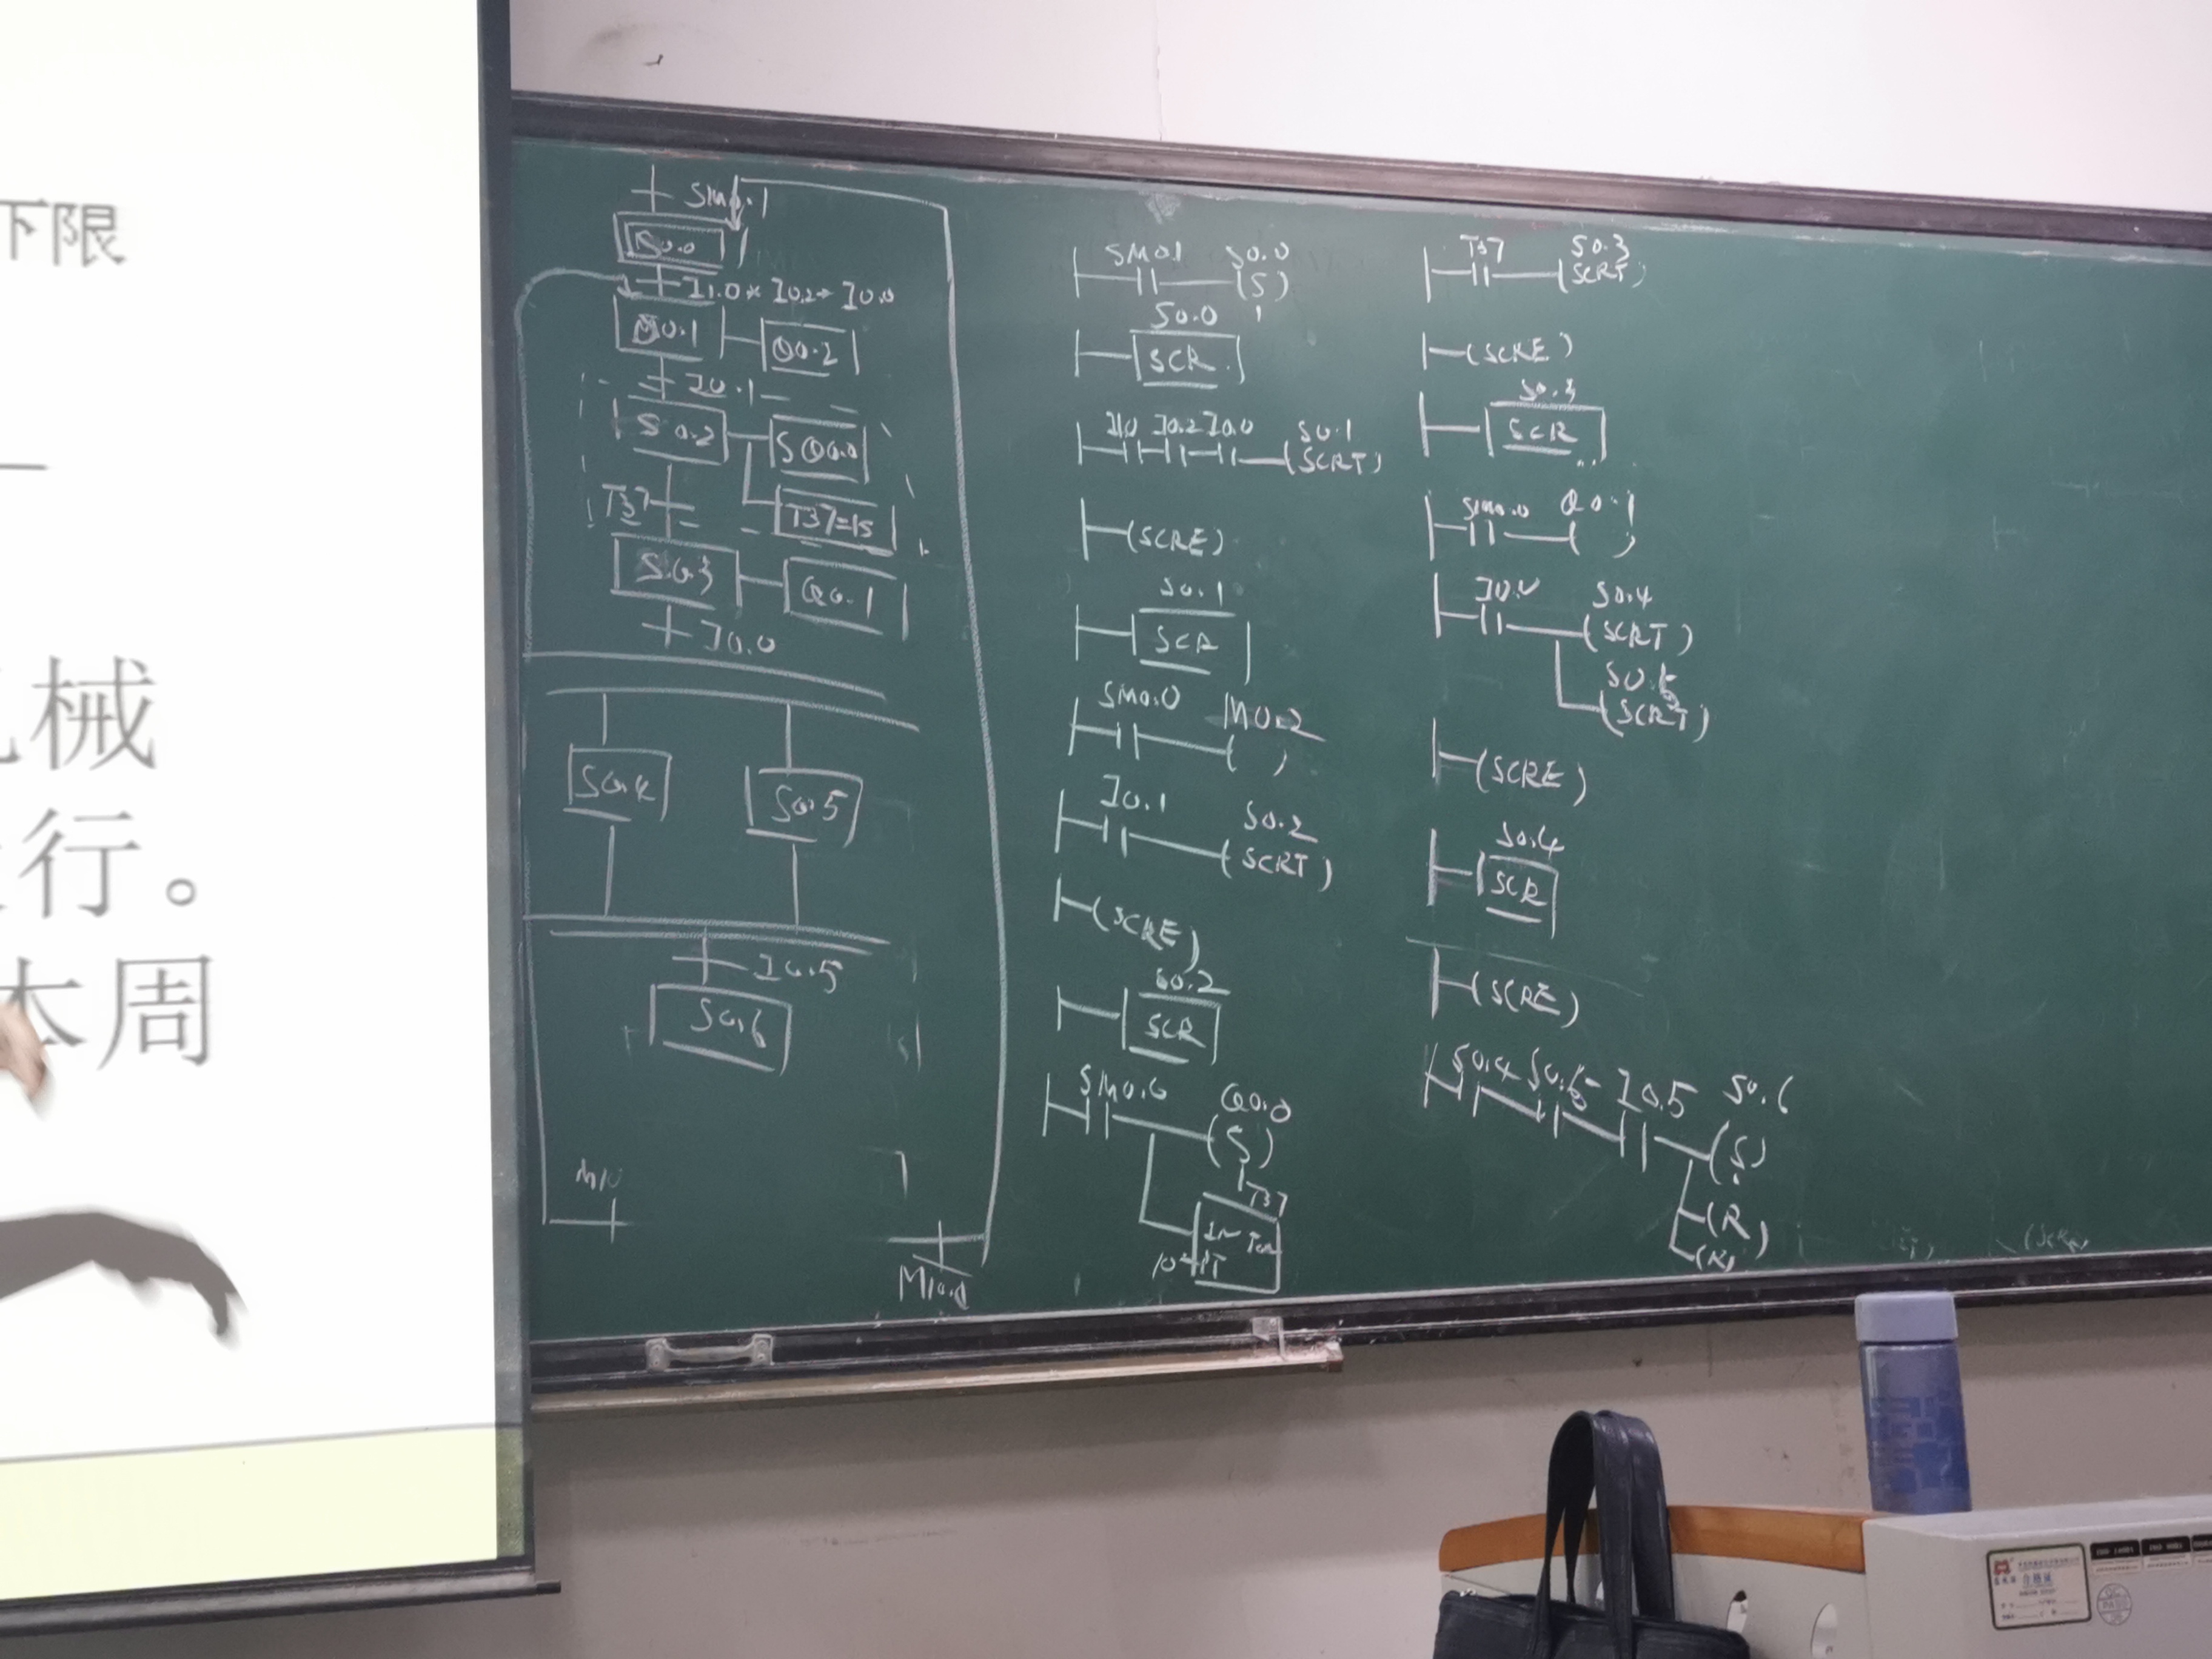 下限
械
行。
本周
SM0.1
S0.0
I1.0*I0.2*I0.0
0.1
Q0.2
I0.1
S0.2
S Q0.0
T37
T37=1s
S0.3
Q0.1
I0.0
S0.4
S0.5
I0.5
S0.6
M10.0
SM0.1 S0.0
(S)
1
S0.0
SCR
I1.0 I0.2 I0.0 S0.1
(SCRT)
(SCRE)
S0.1
SCR
SM0.0 M0.2
( )
I0.1 S0.2
(SCRT)
(SCRE)
S0.2
SCR
SM0.0 Q0.0
(S)
1
T37
IN Ton
10 PT
T37 S0.3
(SCRT)
(SCRE)
S0.3
SCR
SM0.0 Q0.1
( )
I0.0 S0.4
(SCRT)
S0.5
(SCRT)
(SCRE)
S0.4
SCR
(SCRE)
S0.4 S0.5 I0.5 S0.6
(S)
(R)
(R)
合格证